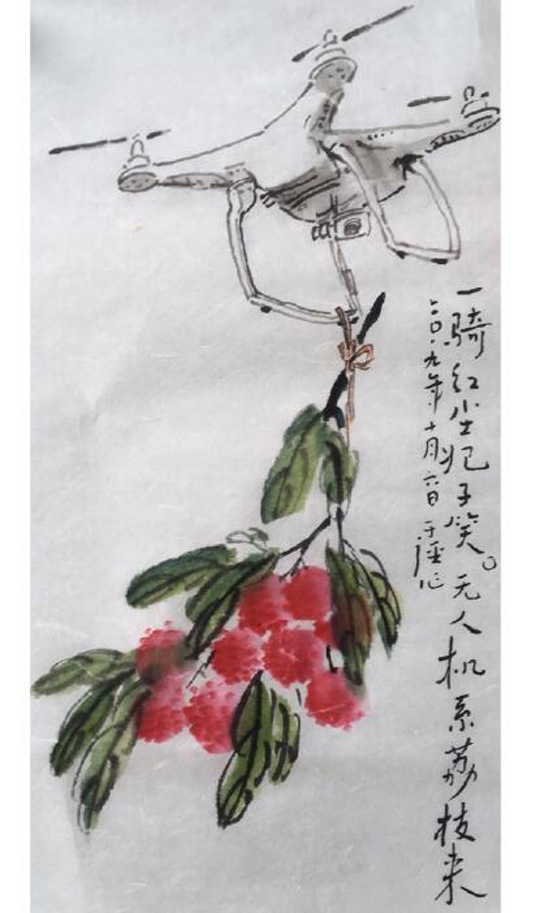 一骑红尘妃子笑。无人机系荔枝来
二〇一九年十月六日